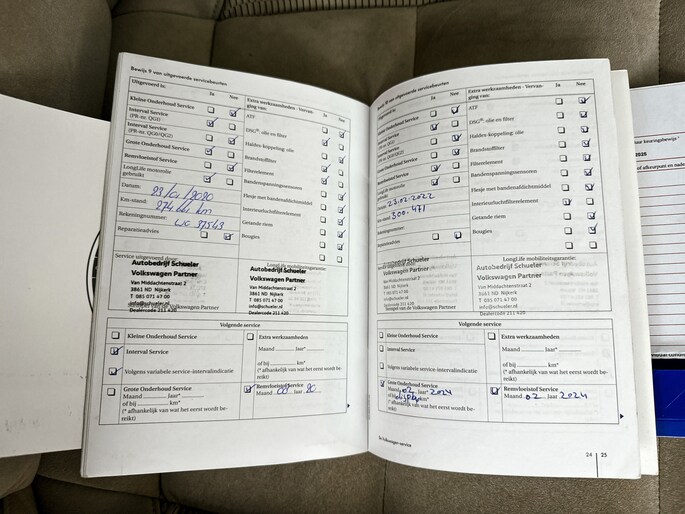 Bewijs 9 van uitgevoerde servicebeurten
Uitgevoerd is: Ja Nee
Kleine Onderhoud Service
Interval Service
(PR-nr. QG1)
Interval Service
(PR-nr. QG0/QG2)
Grote Onderhoud Service
Remvloeistof Service
LongLife motorolie
gebruikt
Datum:
Km-stand:
Rekeningnummer:
Reparatieadvies
Extra werkzaamheden - Vervan-
ging van: Ja Nee
ATF
DSG®: olie en filter
Haldex-koppeling: olie
Brandstoffilter
Filterelement
Bandenspanningssensoren
Flesje met bandenafdichtmiddel
Interieurluchtfilterelement
Getande riem
Bougies
Service uitgevoerd door:
LongLife mobiliteitsgarantie:
Autobedrijf Schueler
Volkswagen Partner
Van Middachtenstraat 2
3861 ND Nijkerk
T 085 071 47 00
info@schueler.nl
Dealercode 211 420
Autobedrijf Schueler
Volkswagen Partner
Van Middachtenstraat 2
3861 ND Nijkerk
T 085 071 47 00
info@schueler.nl
Dealercode 211 420
Volgende service
Kleine Onderhoud Service
Interval Service
Volgens variabele service-intervalindicatie
Extra werkzaamheden
Maand jaar*
of bij km*
(* afhankelijk van wat het eerst wordt be-
reikt)
Grote Onderhoud Service
Maand jaar*
of bij km*
(* afhankelijk van wat het eerst wordt be-
reikt)
Remvloeistof Service
Maand jaar 20
Bewijs 10 van uitgevoerde servicebeurten
Ja Nee
Onderhoud Service
Grote Onderhoud Service
Remvloeistof Service
LongLife motorolie
gebruikt
Datum: 23-02-2022
300.471
Extra werkzaamheden - Vervan-
ging van: Ja Nee
ATF
DSG®: olie en filter
Haldex-koppeling: olie
Brandstoffilter
Filterelement
Bandenspanningssensoren
Flesje met bandenafdichtmiddel
Interieurluchtfilterelement
Getande riem
Bougies
Service uitgevoerd door:
LongLife mobiliteitsgarantie:
Autobedrijf Schueler
Volkswagen Partner
Van Middachtenstraat 2
3861 ND Nijkerk
T 085 071 47 00
info@schueler.nl
Dealercode 211 420
Stempel van de Volkswagen Partner
Autobedrijf Schueler
Volkswagen Partner
Van Middachtenstraat 2
3861 ND Nijkerk
T 085 071 47 00
info@schueler.nl
Dealercode 211 420
Volgende service
Kleine Onderhoud Service
Interval Service
Volgens variabele service-intervalindicatie
Extra werkzaamheden
Maand jaar*
of bij km*
(* afhankelijk van wat het eerst wordt be-
reikt)
Grote Onderhoud Service
Maand 02 jaar* 2024
(* afhankelijk van wat het eerst wordt be-
reikt)
Remvloeistof Service
Maand 02 jaar 2024
24 | 25
2025